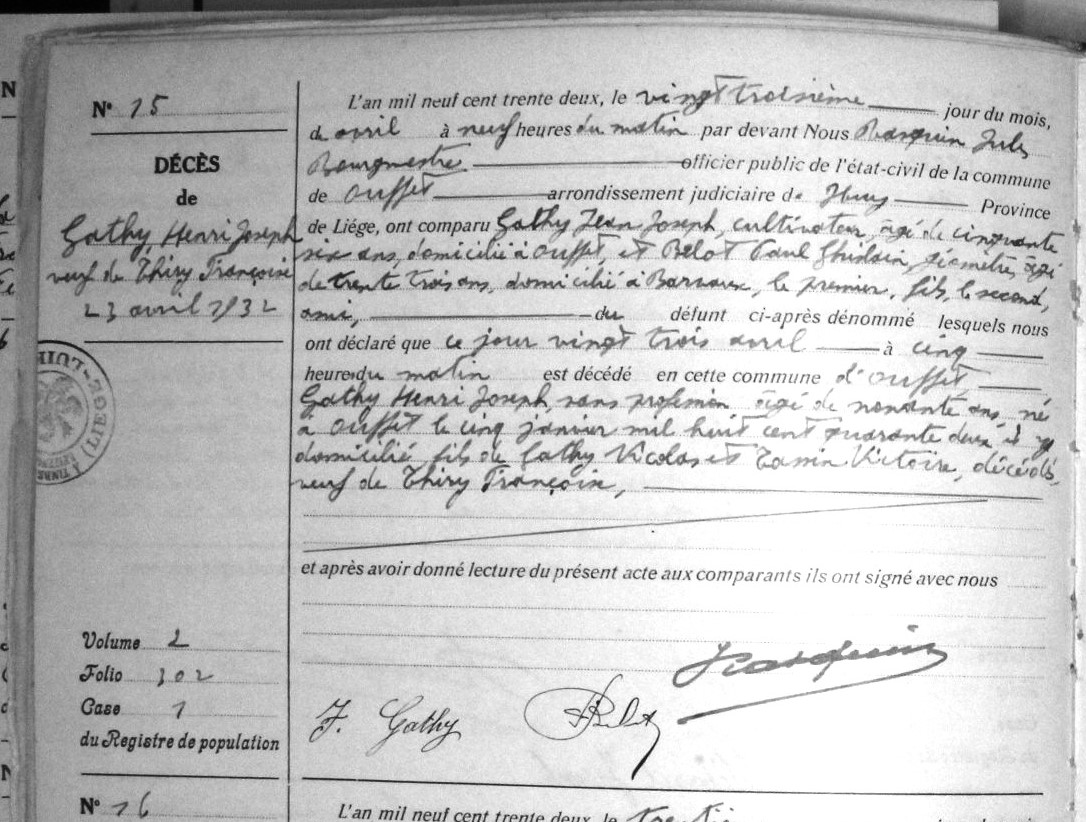 Nº 15
DÉCÈS
de
Gathy Henri Joseph
veuf de Thiry Françoise
23 avril 1932
L'an mil neuf cent trente deux, le vingt troisième jour du mois,
de avril à neuf heures du matin par devant Nous Rasquin Jules
Bourgmestre officier public de l'état-civil de la commune
de Ouffet arrondissement judiciaire de Huy Province
de Liége, ont comparu Gathy Jean Joseph, cultivateur, âgé de cinquante
six ans, domicilié à Ouffet, et Belot Paul Ghislain, géomètre, âgé
de trente trois ans, domicilié à Barvaux, le premier, fils, le second,
ami, du défunt ci-après dénommé lesquels nous
ont déclaré que ce jour vingt trois avril à cinq
heures du matin est décédé en cette commune d'Ouffet
Gathy Henri Joseph, sans profession âgé de nonante ans, né
à Ouffet le cinq janvier mil huit cent quarante deux et y
domicilié fils de Gathy Nicolas et Tamin Victoire, décédés,
veuf de Thiry Françoise,
et après avoir donné lecture du présent acte aux comparants ils ont signé avec nous
Rasquin
J. Gathy
Belot
Volume 2
Folio 302
Case 1
du Registre de population
Nº 16
L'an mil neuf cent trente deux, le